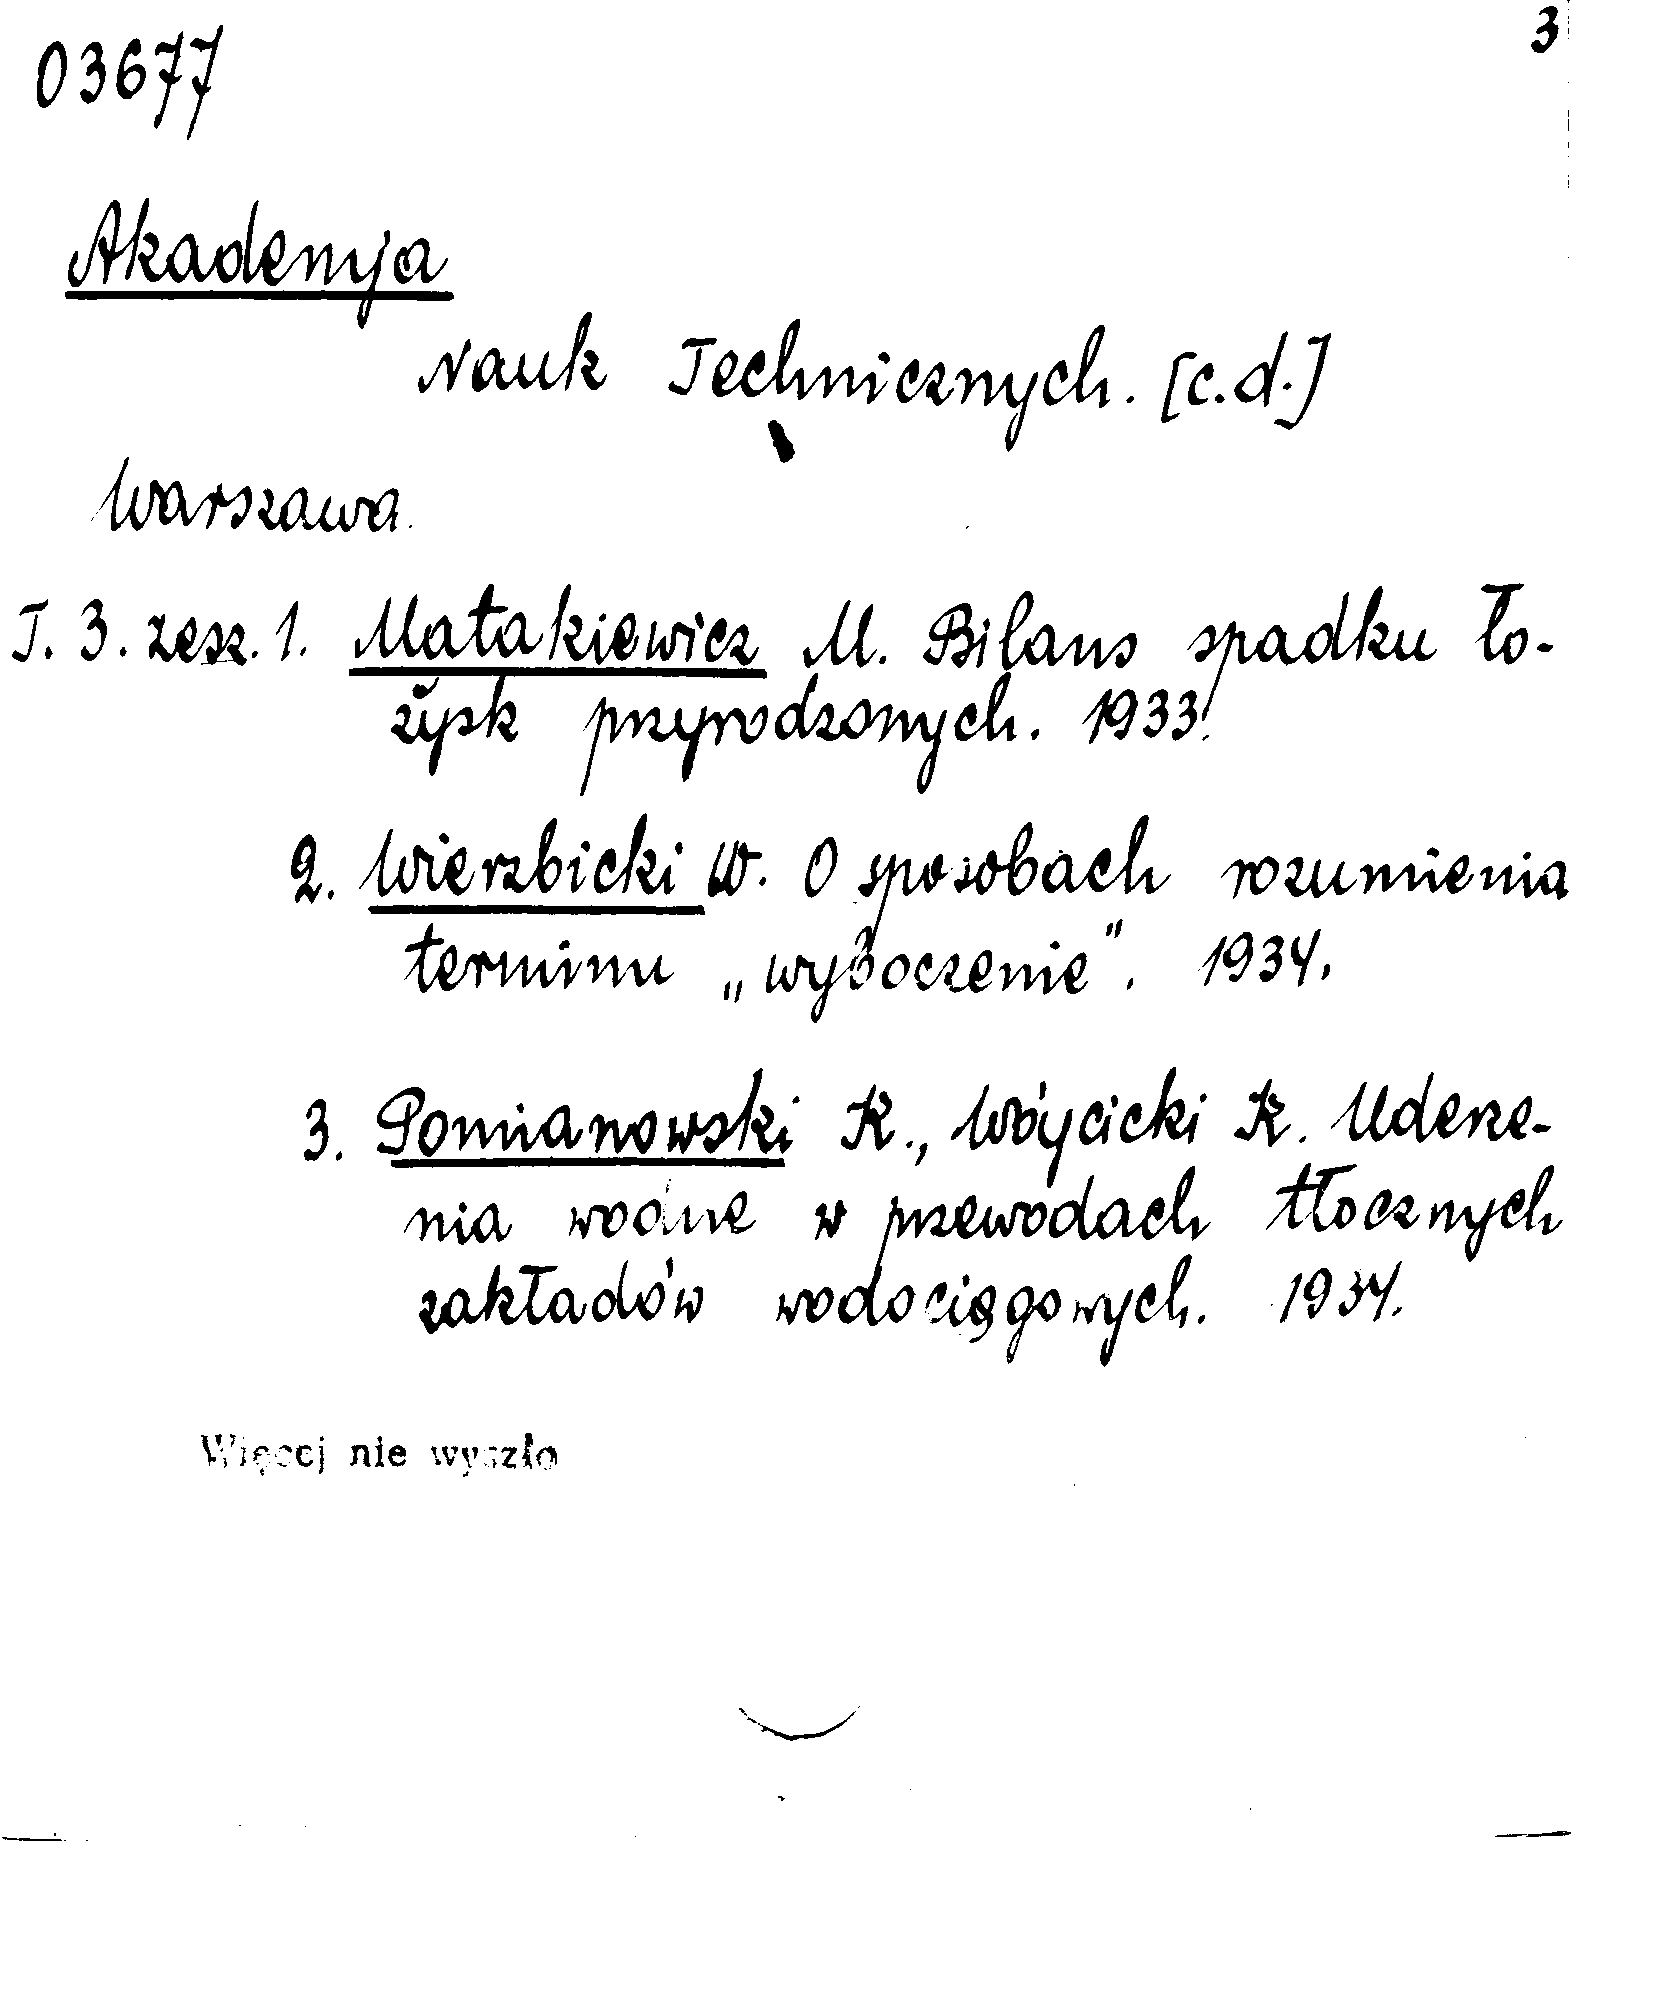 3
03677
Akademja
Nauk Technicznych. [c.d.]
Warszawa.
T. 3. zesz. 1. Matakiewicz M. Bilans spadku ło-
żysk przyrodzonych. 1933.
2. Wierzbicki W. O sposobach rozumienia
terminu „wyboczenie". 1934.
3. Pomianowski K., Wóycicki K. Uderze-
nia wodne w przewodach tłocznych
zakładów wodociągowych. 1934.
Więcej nie wyszło